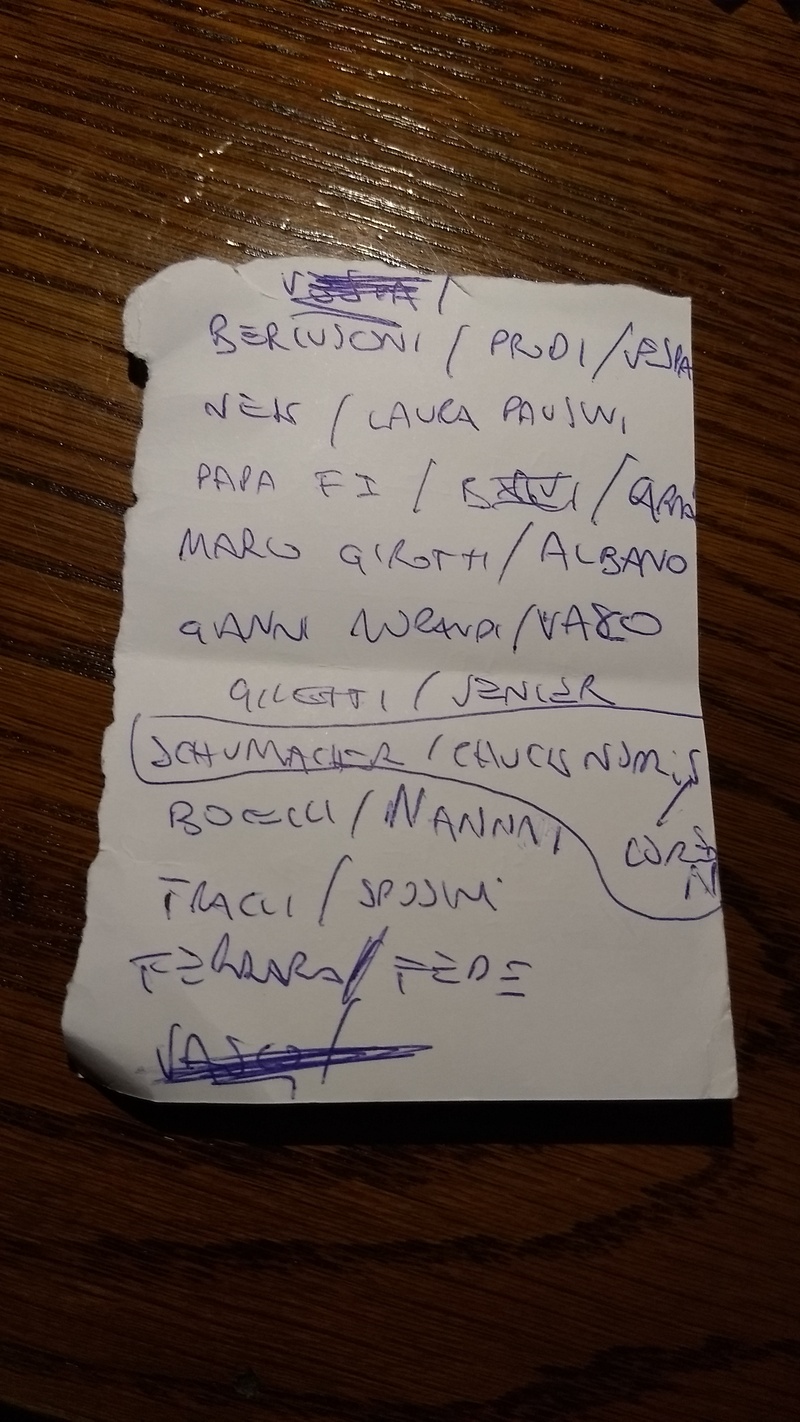 BERLUSCONI / PRODI / VESPA
NEK / LAURA PAUSINI
PAPA FI /
MARCO GIROTTI / ALBANO
GIANNI MORANDI / VASCO
GILETTI /
SCHUMACHER / CHUCK NORRIS
BOCELLI / NANNINI
FERRARA / FEDE
VASCO /